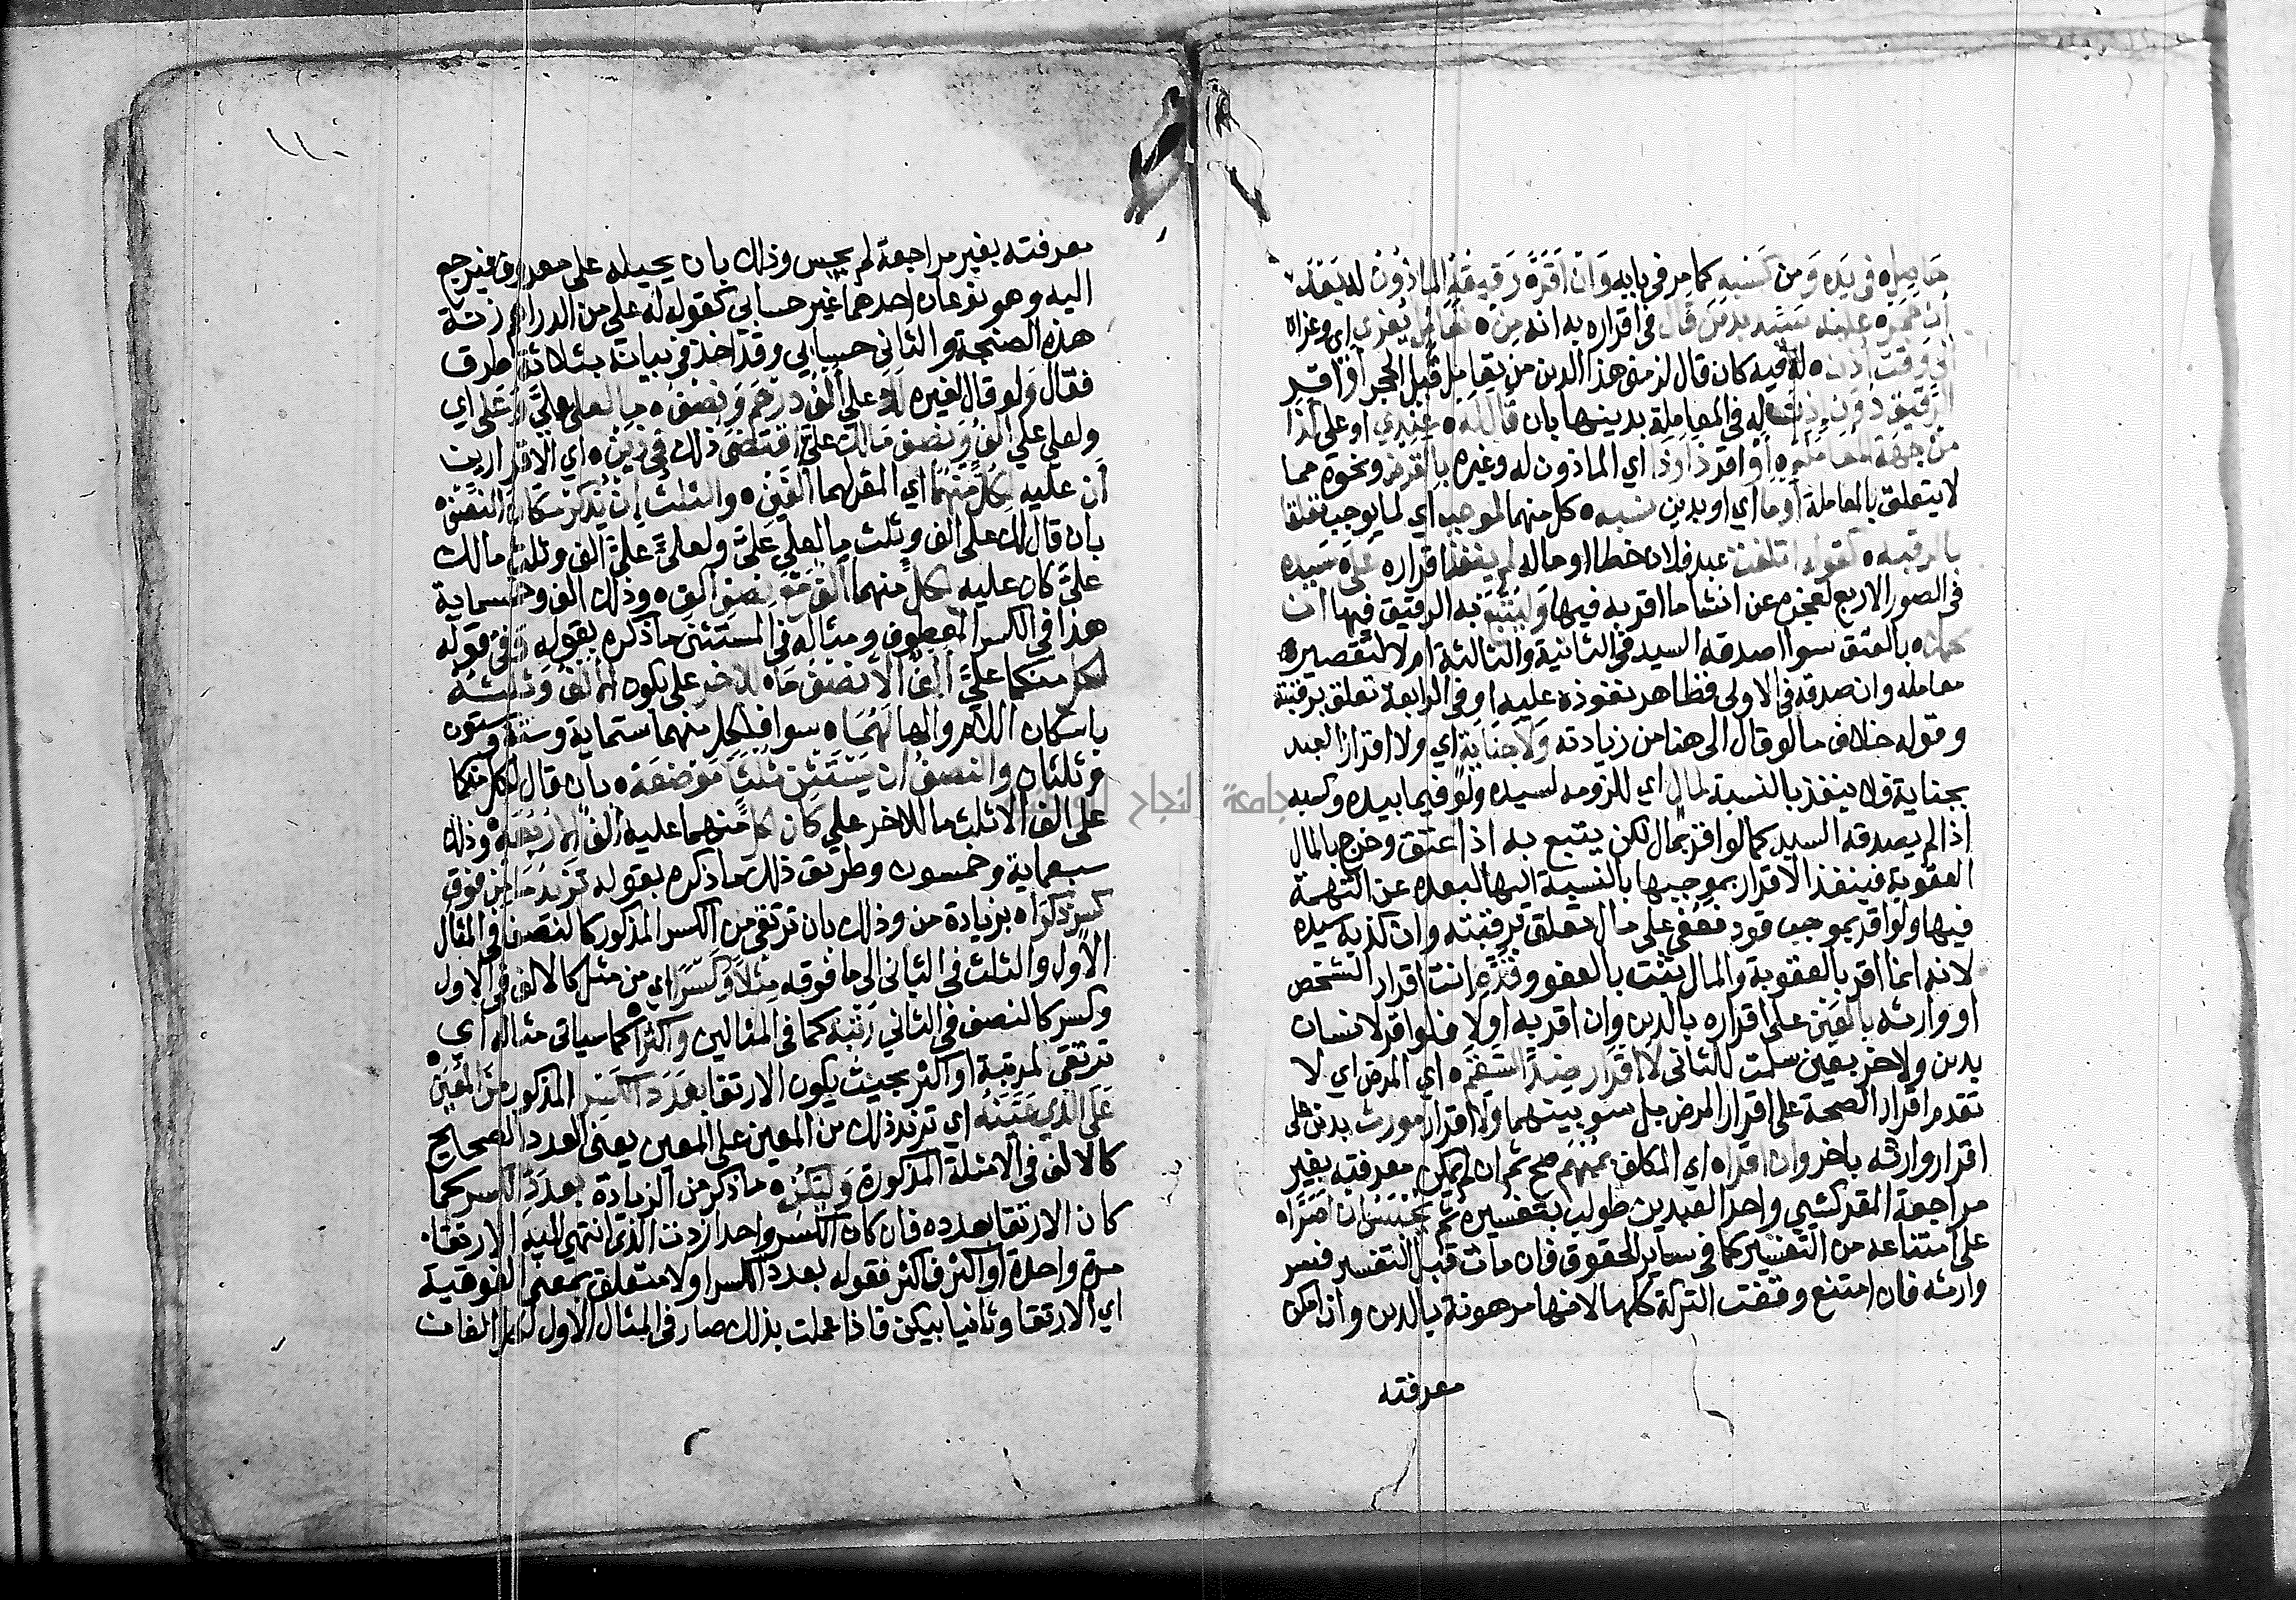 حاصله في يده ومن كسبه كما مر في بابه وان اقره رقيقة الماذون له بعد
ان حجره عليه سيده بدين قال في اقراره به انه من تعامل يعزى اي وعزاه
الى وقت اذن له فيه كان قال لزمنى هذا الدين من تعامل قبل الحجر او اقر
الرقيق دون اذن له في المعاملة بدينها بان قال له عندي او على كذا
من جهة المعاملة او اقر ذا اي الماذون له وغيره بالقرض ونحوه مما
لا يتعلق بالمعاملة او ما اي او بدين نسبه كل منهما لموجب اي لما يوجب تعلقا
بالرقبه كقوله اتلفت عبد فلان خطا او ماله لم ينفذ اقراره على سيده
في الصور الاربع لعجزه عن انشا ما اقر به فيها وليتبع به الرقيق فيها ان
بالعتق سوا اصدقه السيد في الثانية والثالثة ام لا لتقصير
معامله وان صدقه في الاولى فظاهر نفوذه عليه او في الرابعة تعلق برقبته
وقوله خلاف ما لو قال الى هنا من زيادته ولا جناية اي ولا اقرار العبد
بجناية فلا ينفذ بالنسبة لمال اي للزومه لسيده ولو فيما بيده وكسبه
اذا لم يصدقه السيد كما لو اقر بمال لكن يتبع به اذا عتق وخرج بالمال
العقوبة فينفذ الاقرار بموجبها بالنسبة اليها لبعده عن التهمة
فيها ولو اقر بموجب قود فعفى على مال تعلق برقبته وان كذبه سيده
لانه انما اقر بالعقوبة والمال يثبت بالعفو وقدم انت اقرار الشخص
او وارثه بالعين على اقراره بالدين وان اقر به اولا فلو اقر لانسان
بدين ولاخر بعين سلمت للثاني لا اقرار ضد السقم اي المرض اي لا
تقدم اقرار الصحة على اقرار المرض بل سو بينهما ولا اقرار مورث بدين على
اقرار وارثه باخر وان اقراه اي المكلف بمبهم صح ثم ان لم يمكن معرفته بغير
مراجعة المقر كشي واحد العبدين طولب بتفسيره ثم يحبس ان اصراه
على امتناعه من التفسير كما في ساير الحقوق فان مات قبل التفسير فسر
وارثه فان امتنع وقفت التركة كلها لانها مرهونة بالدين وان امكن
معرفته
١١٠
معرفته بغير مراجعة لم يحبس وذلك بان يحيله على معروف فيرجع
اليه وهو نوعان احدهما غير حسابي كقوله له علي من الدراهم زنة
هذه الصنجة والثاني حسابي وقد اخذ في بيانه بثلاثة طرق
فقال ولو قال لغيره له علي الف درهم ونصف ما لعلى علي وعلى اي
ولعلي علي الف ونصف مالك علي اقتضى ذلك في ذين اي الاقرارين
ان عليه لكل منهما اي المقر لهما الفين والثلث ان يذكر مكان النصف
بان قال لك علي الف وثلث ما لعلي علي ولعلي علي الف وثلث مالك
علي كان عليه لكل منهما الف مع نصف الف وذلك الف وخمسماية
هذا في الكسر المعطوف ومثاله في المستثنى ما ذكره بقوله وفي قوله
لكل منكما علي الف الا نصف ما للاخر علي يكون له الف وثلثه
باسكان اللام والها لهما سوا فلكل منهما ستماية وستة وستون
وثلثان والنصف ان يستثن ثلثا موضعه بان قال لكل منكما
علي الف الا ثلث ما للاخر علي كان لكل منهما عليه الف الا ربعه وذلك
سبعماية وخمسون وطريق ذلك ما ذكره بقوله تزيد ما من فوق
كسر ذكراه بزيادة من وذلك بان ترتقي من الكسر المذكور كالنصف في المثال
الاول والثلث في الثاني الى ما فوقه مثلا وكسرا اي من مثل كالالف في الاول
وكسر كالنصف في الثاني رتبة كما في المثالين واكثرا كما سياتي مثاله اي
ترتقى لمرتبة او اكثر بحيث يكون الارتقا بعدد الكسر المذكور من المعين
على الذي عينته اي تزيد ذلك من المعين على المعين يعنى العدد الصحيح
كالالف في الامثلة المذكورة وليكن ما ذكر من الزيادة بعدد الكسر كما
كان الارتقا بعدده فان كان الكسر واحدا زدت الذي انتهي اليه الارتقا
مرة واحدة او اكثر فاكثر فقوله بعدد الكسر اولا متعلق بمعنى الفوقية
اي الارتقا وثانيا بيكن فاذا عملت بذلك صار في المثال الاول لكل الفان
جامعة النجاح الوطنية